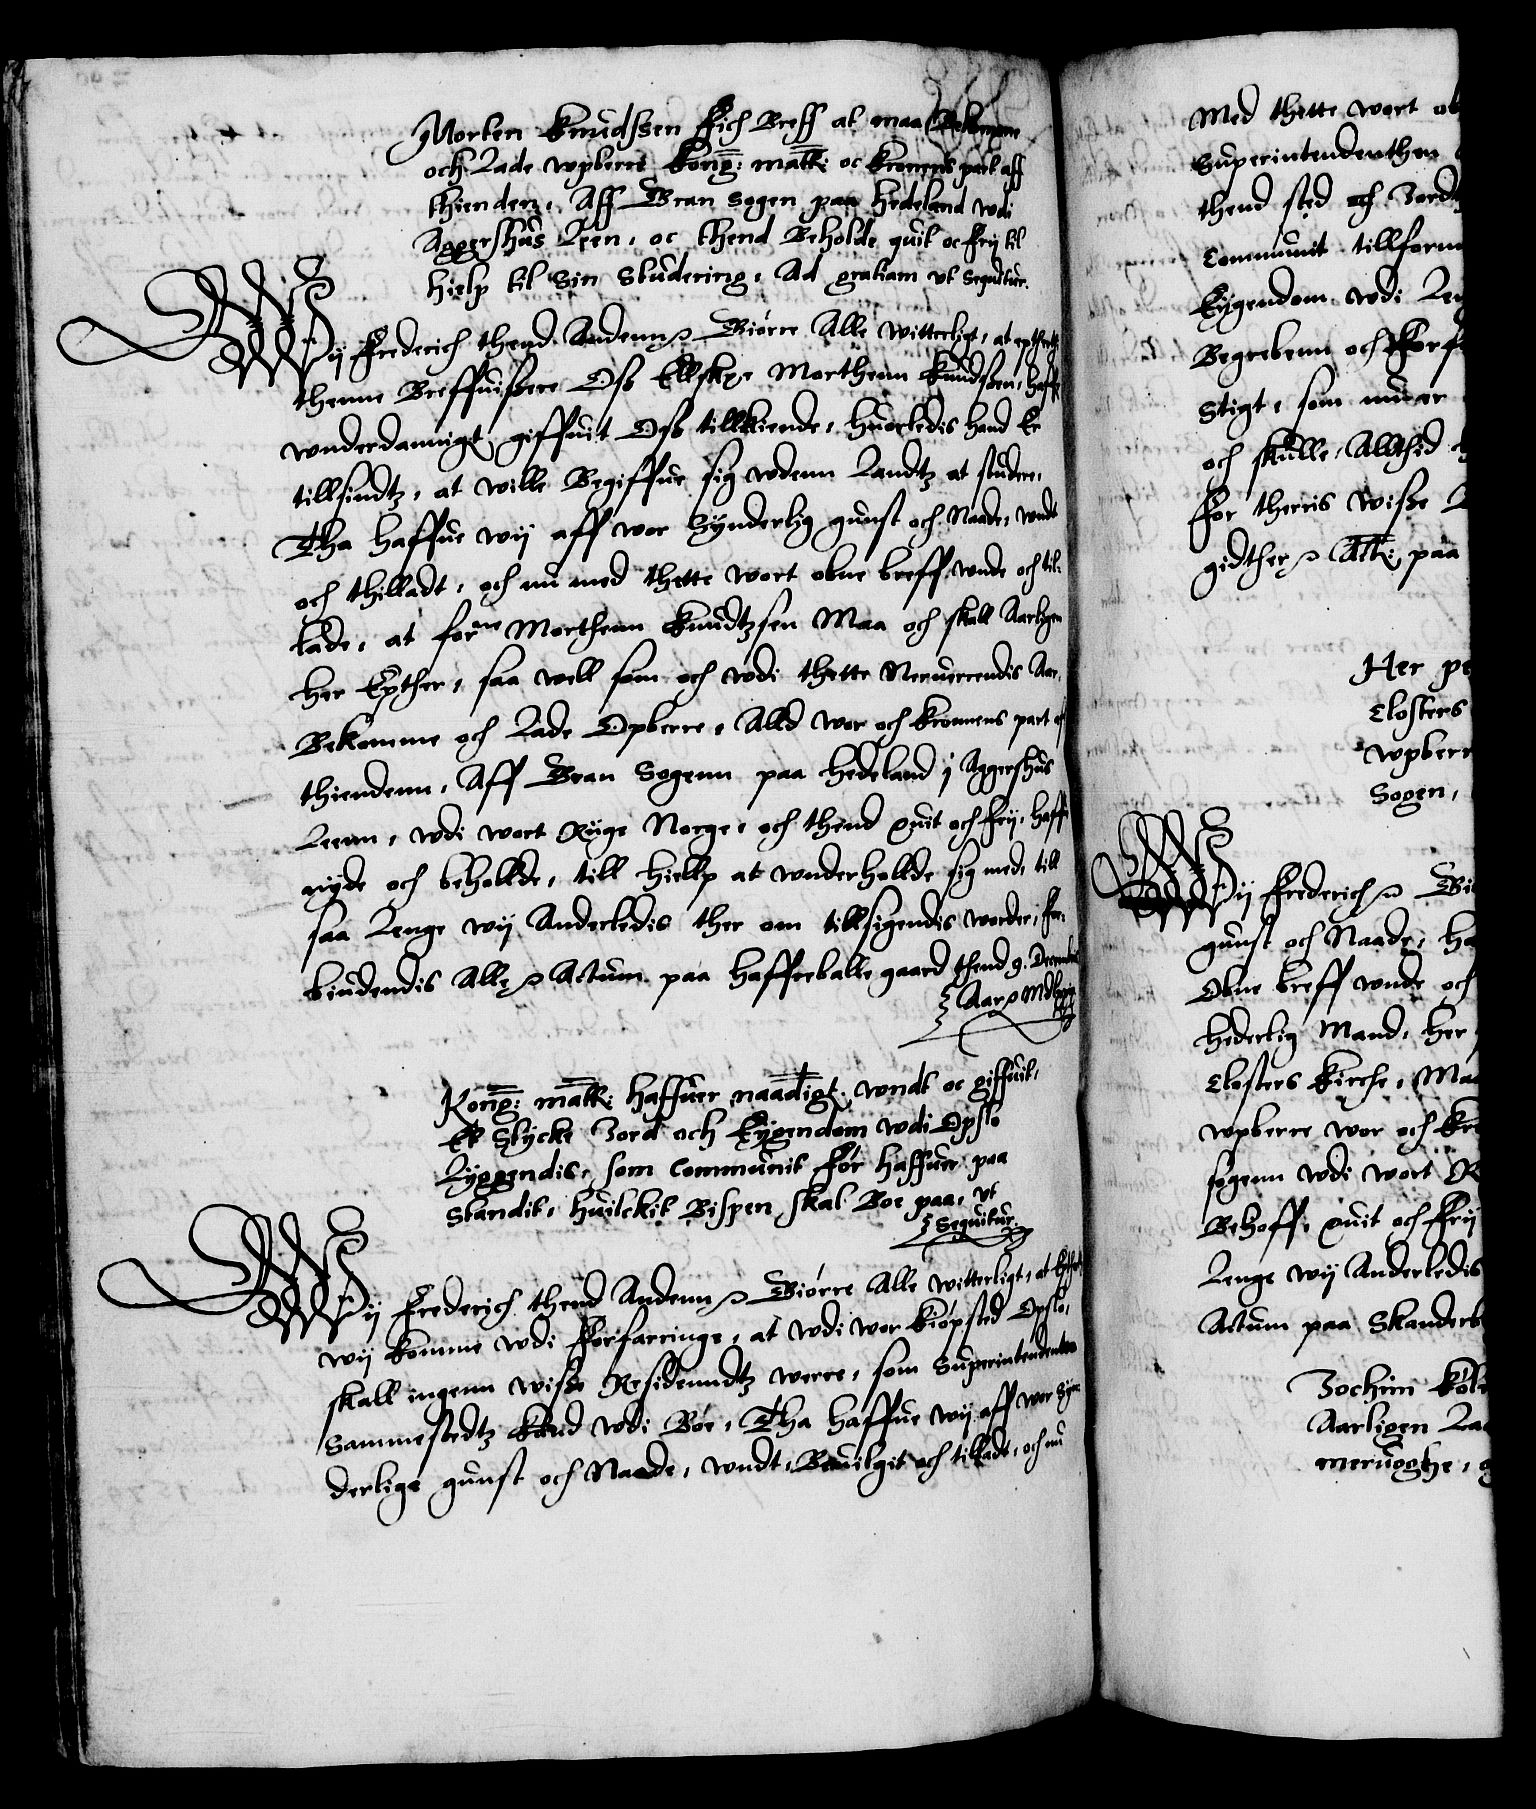 Morten Knudssen fich Breff at maa Bekomme
och Lade wpberre Kong: matt: oc kronens part aff
thienden, Aff Bran sogen paa Hedeland wdi
Aggershus Leen, oc thend Beholde quit oc frij til
hielp til Sin Studering, Ad gratiam vt sequitur.
Wij Frederich thend Andenn Giørre Alle witterligt, at epther
thenne Breffuisere Oss Ellskge Morthenn Knudssen, haffr
wnderdannigt giffuit Oss tillkiende, huorledis hand Er
tillsindtz, at wille Begiffue sig wdenn Landtz at studere,
Tha haffue wij aff wor Synderlig gunst och Naade, wndt
och thilladt, och nu med thette wort obne breff wnde och til-
lade, at forne Morthenn Knudtzsen Maa och skall Aarligen
her Epther, saa well som och wdi thette Neruerrendis Aar
Bekomme och Lade Opberre, Alld wor och kronens part af
thiendenn, Aff Bran Sogenn paa Hedeland j Aggershus
Leenn, wdi wort Rige Norge, och thend quit och frij, haffue
nyde och beholde, till hiellp at wnderhollde sig med, till
saa Lenge wij Anderledis ther om tillsigendis worder, for-
biudendis Alle Actum paa Haffreballe gaard thend 9. Decembris
Aar Mdlxxix
Kong: matt: haffuer naadigt wndt oc giffuit,
Et Stycke Jord och Eygendom wdi Opslo
Lyggendis, som Communit før haffuer paa
standit, huilckit Bispen skal Boe paa, vt
Sequitur.
Wij Frederich thend Andenn Giørre Alle witterligt, at Epther
wij komme wdi forfarringe, at wdi wor kiøpsted Opslo,
skall ingenn wisse Residenndtz werre, som Superintendenten
Sammestedtz kand wdi Boe, Tha haffue wij aff wor Syn-
derlige gunst och Naade, wndt, Beuilgit och tilladt, och nu
Med thette wort ob
Superintendenthen
thend sted och Jord
Communit tillforn
Eygendom wdi
Begrebenn och forf
Stigt, som nu er
och skulle, Alltid
For therris wisse
gidther Att: paa
Her pe
Closters
wpberr
Sogen,
Wij Frederich Gi
gunst och Naade, ha
Obne breff wnde och
hederlig Mand, Her
Closters Kirche, Ma
wpberre wor och kr
sogenn wdi wort R
Behoff, quit och frij
Lenge wij Anderledis
Actum paa Skanderb
Jochim
Aarligen La